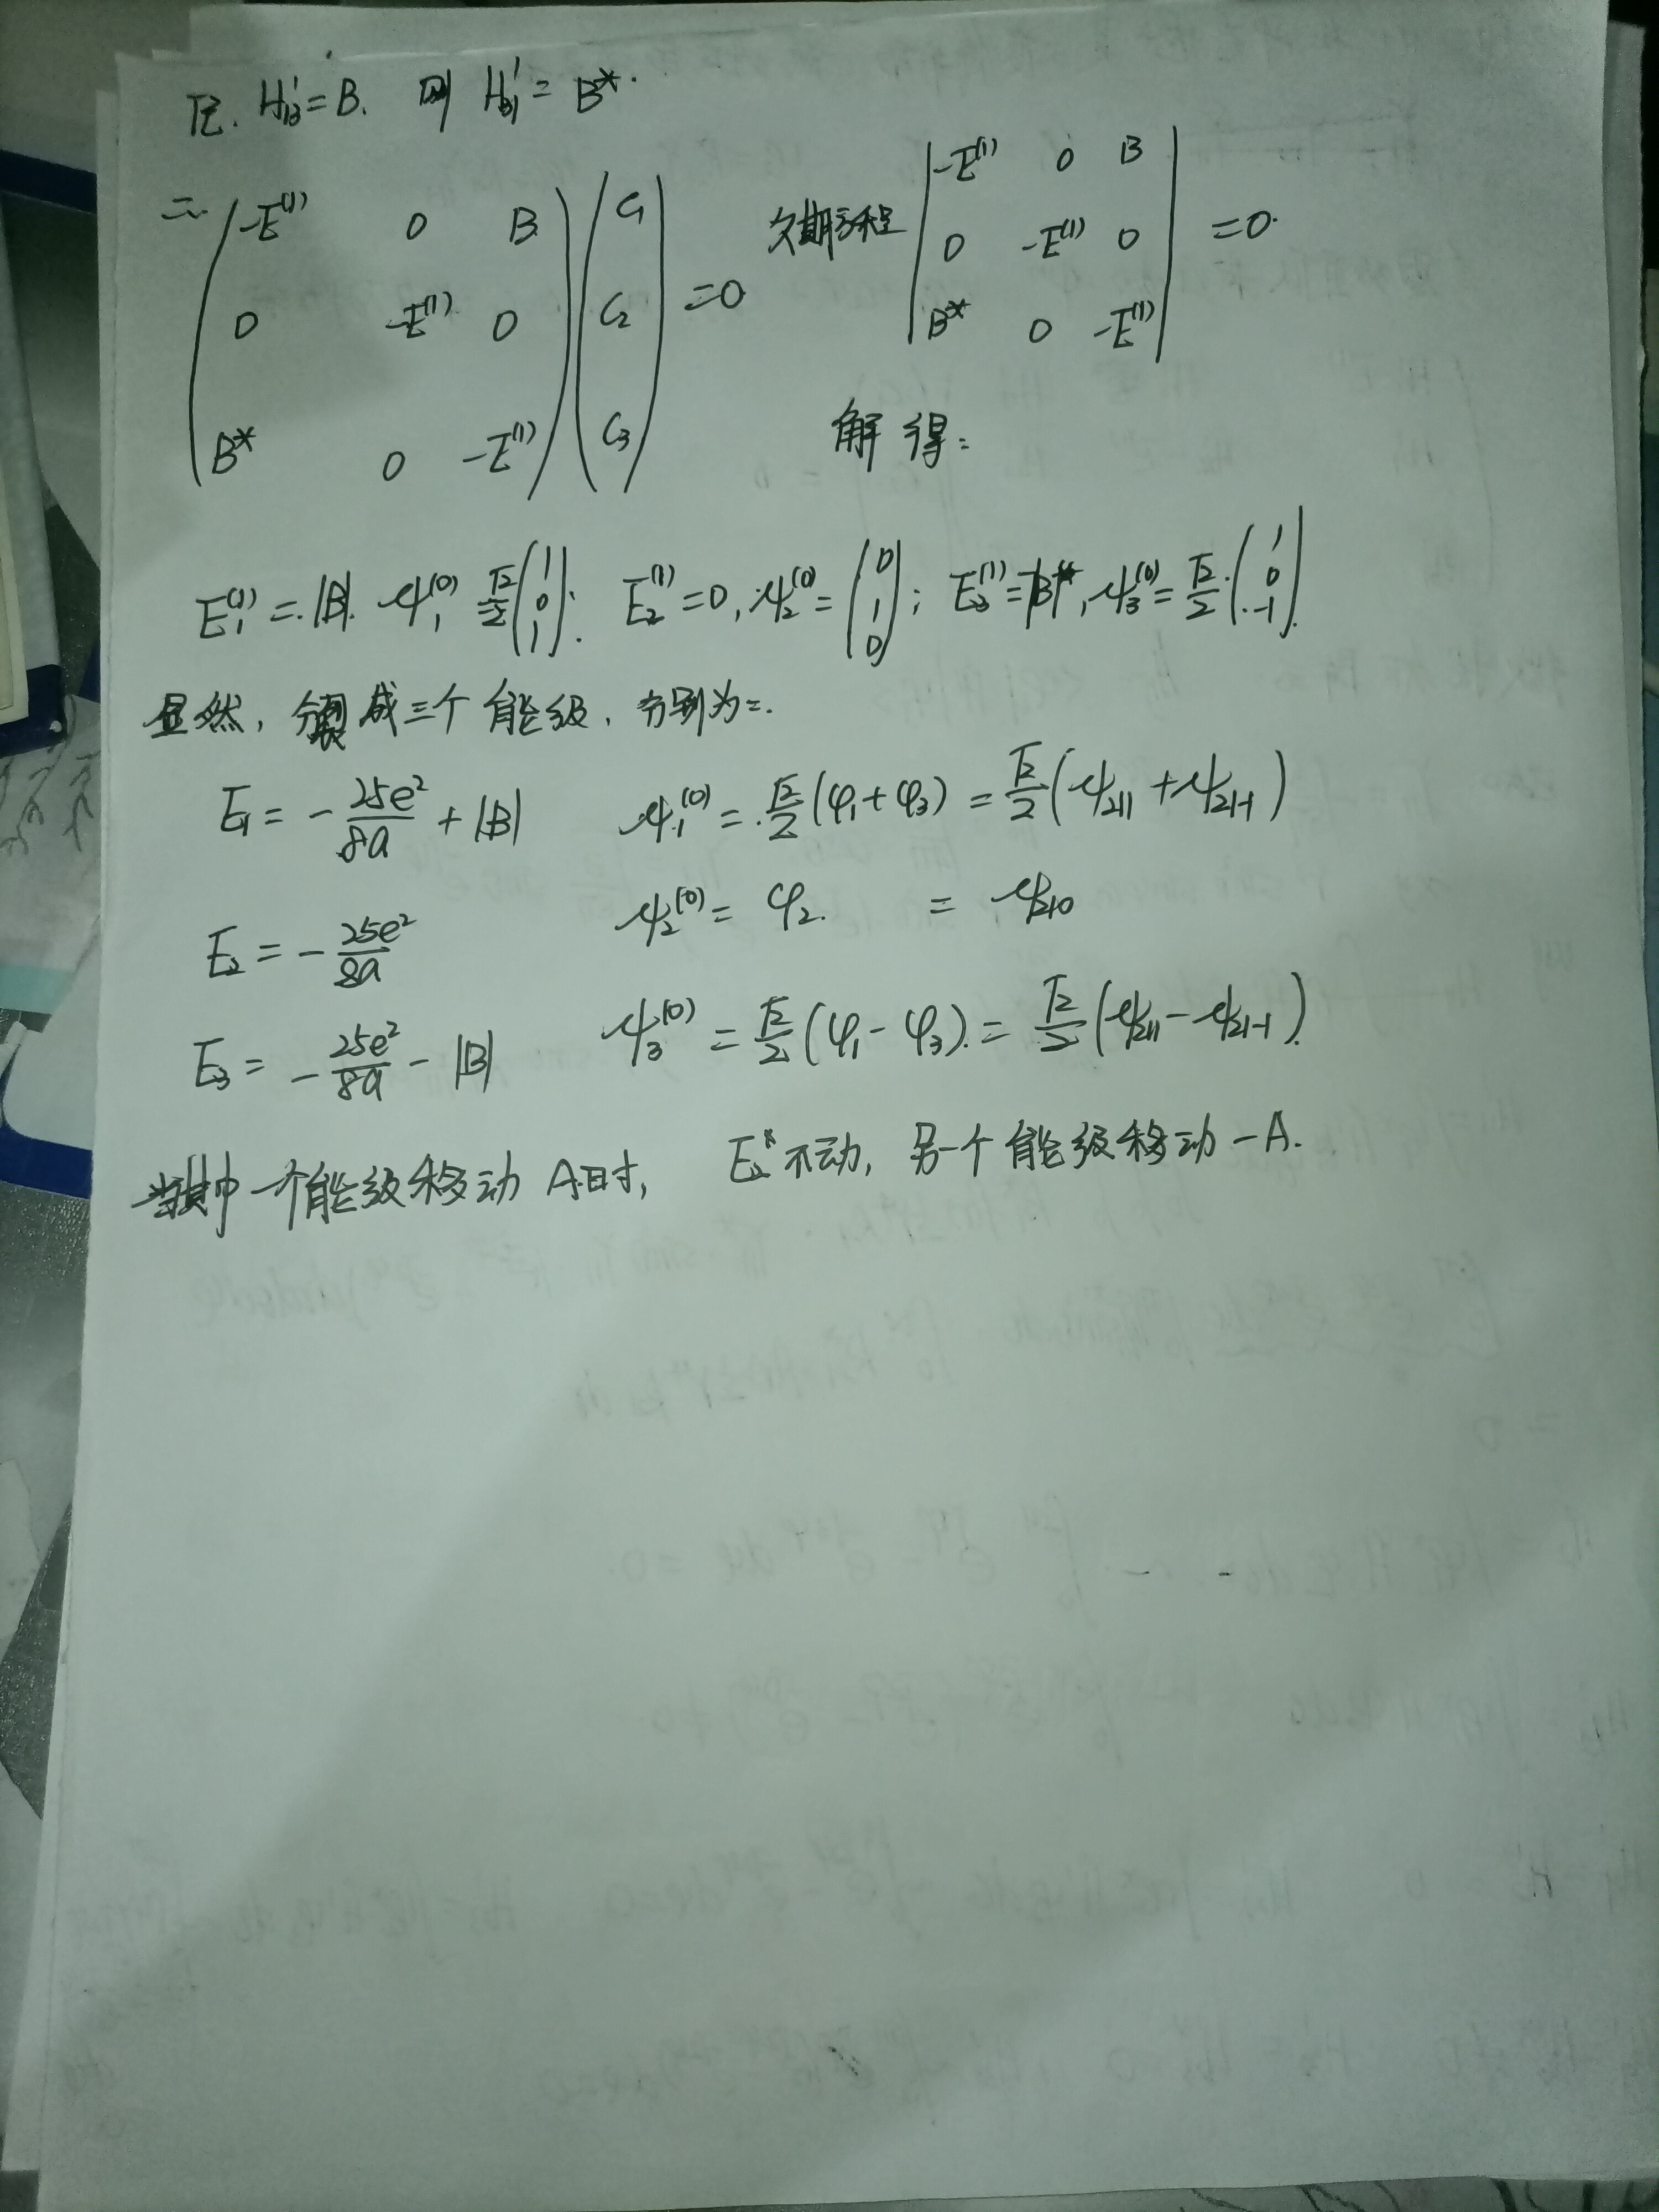 且. H'₁₃=B. 则 H'₃₁=B*.
∴ ( -E⁽¹⁾ 0 B ; 0 -E⁽¹⁾ 0 ; B* 0 -E⁽¹⁾ ) ( C₁ ; C₂ ; C₃ ) =0 久期方程 | -E⁽¹⁾ 0 B ; 0 -E⁽¹⁾ 0 ; B* 0 -E⁽¹⁾ | =0.
解得:
E₁⁽¹⁾=|B|. ψ₁⁽⁰⁾=√2/2 ( 1 ; 0 ; 1 ); E₂⁽¹⁾=0, ψ₂⁽⁰⁾=( 0 ; 1 ; 0 ); E₃⁽¹⁾= , ψ₃⁽⁰⁾=√2/2 ( 1 ; 0 ; -1 ).
显然, 分裂成三个能级, 分别为:
E₁ = -25e²/8a + |B| ψ₁⁽⁰⁾ = √2/2 (φ₁+φ₃) = √2/2 (ψ₂₁₁+ψ₂₁₋₁)
E₂ = -25e²/8a ψ₂⁽⁰⁾ = φ₂. = ψ₂₁₀
E₃ = -25e²/8a - |B| ψ₃⁽⁰⁾ = √2/2 (φ₁-φ₃) = √2/2 (ψ₂₁₁-ψ₂₁₋₁).
当其中一个能级移动 A时, E₂不动, 另一个能级移动 -A.